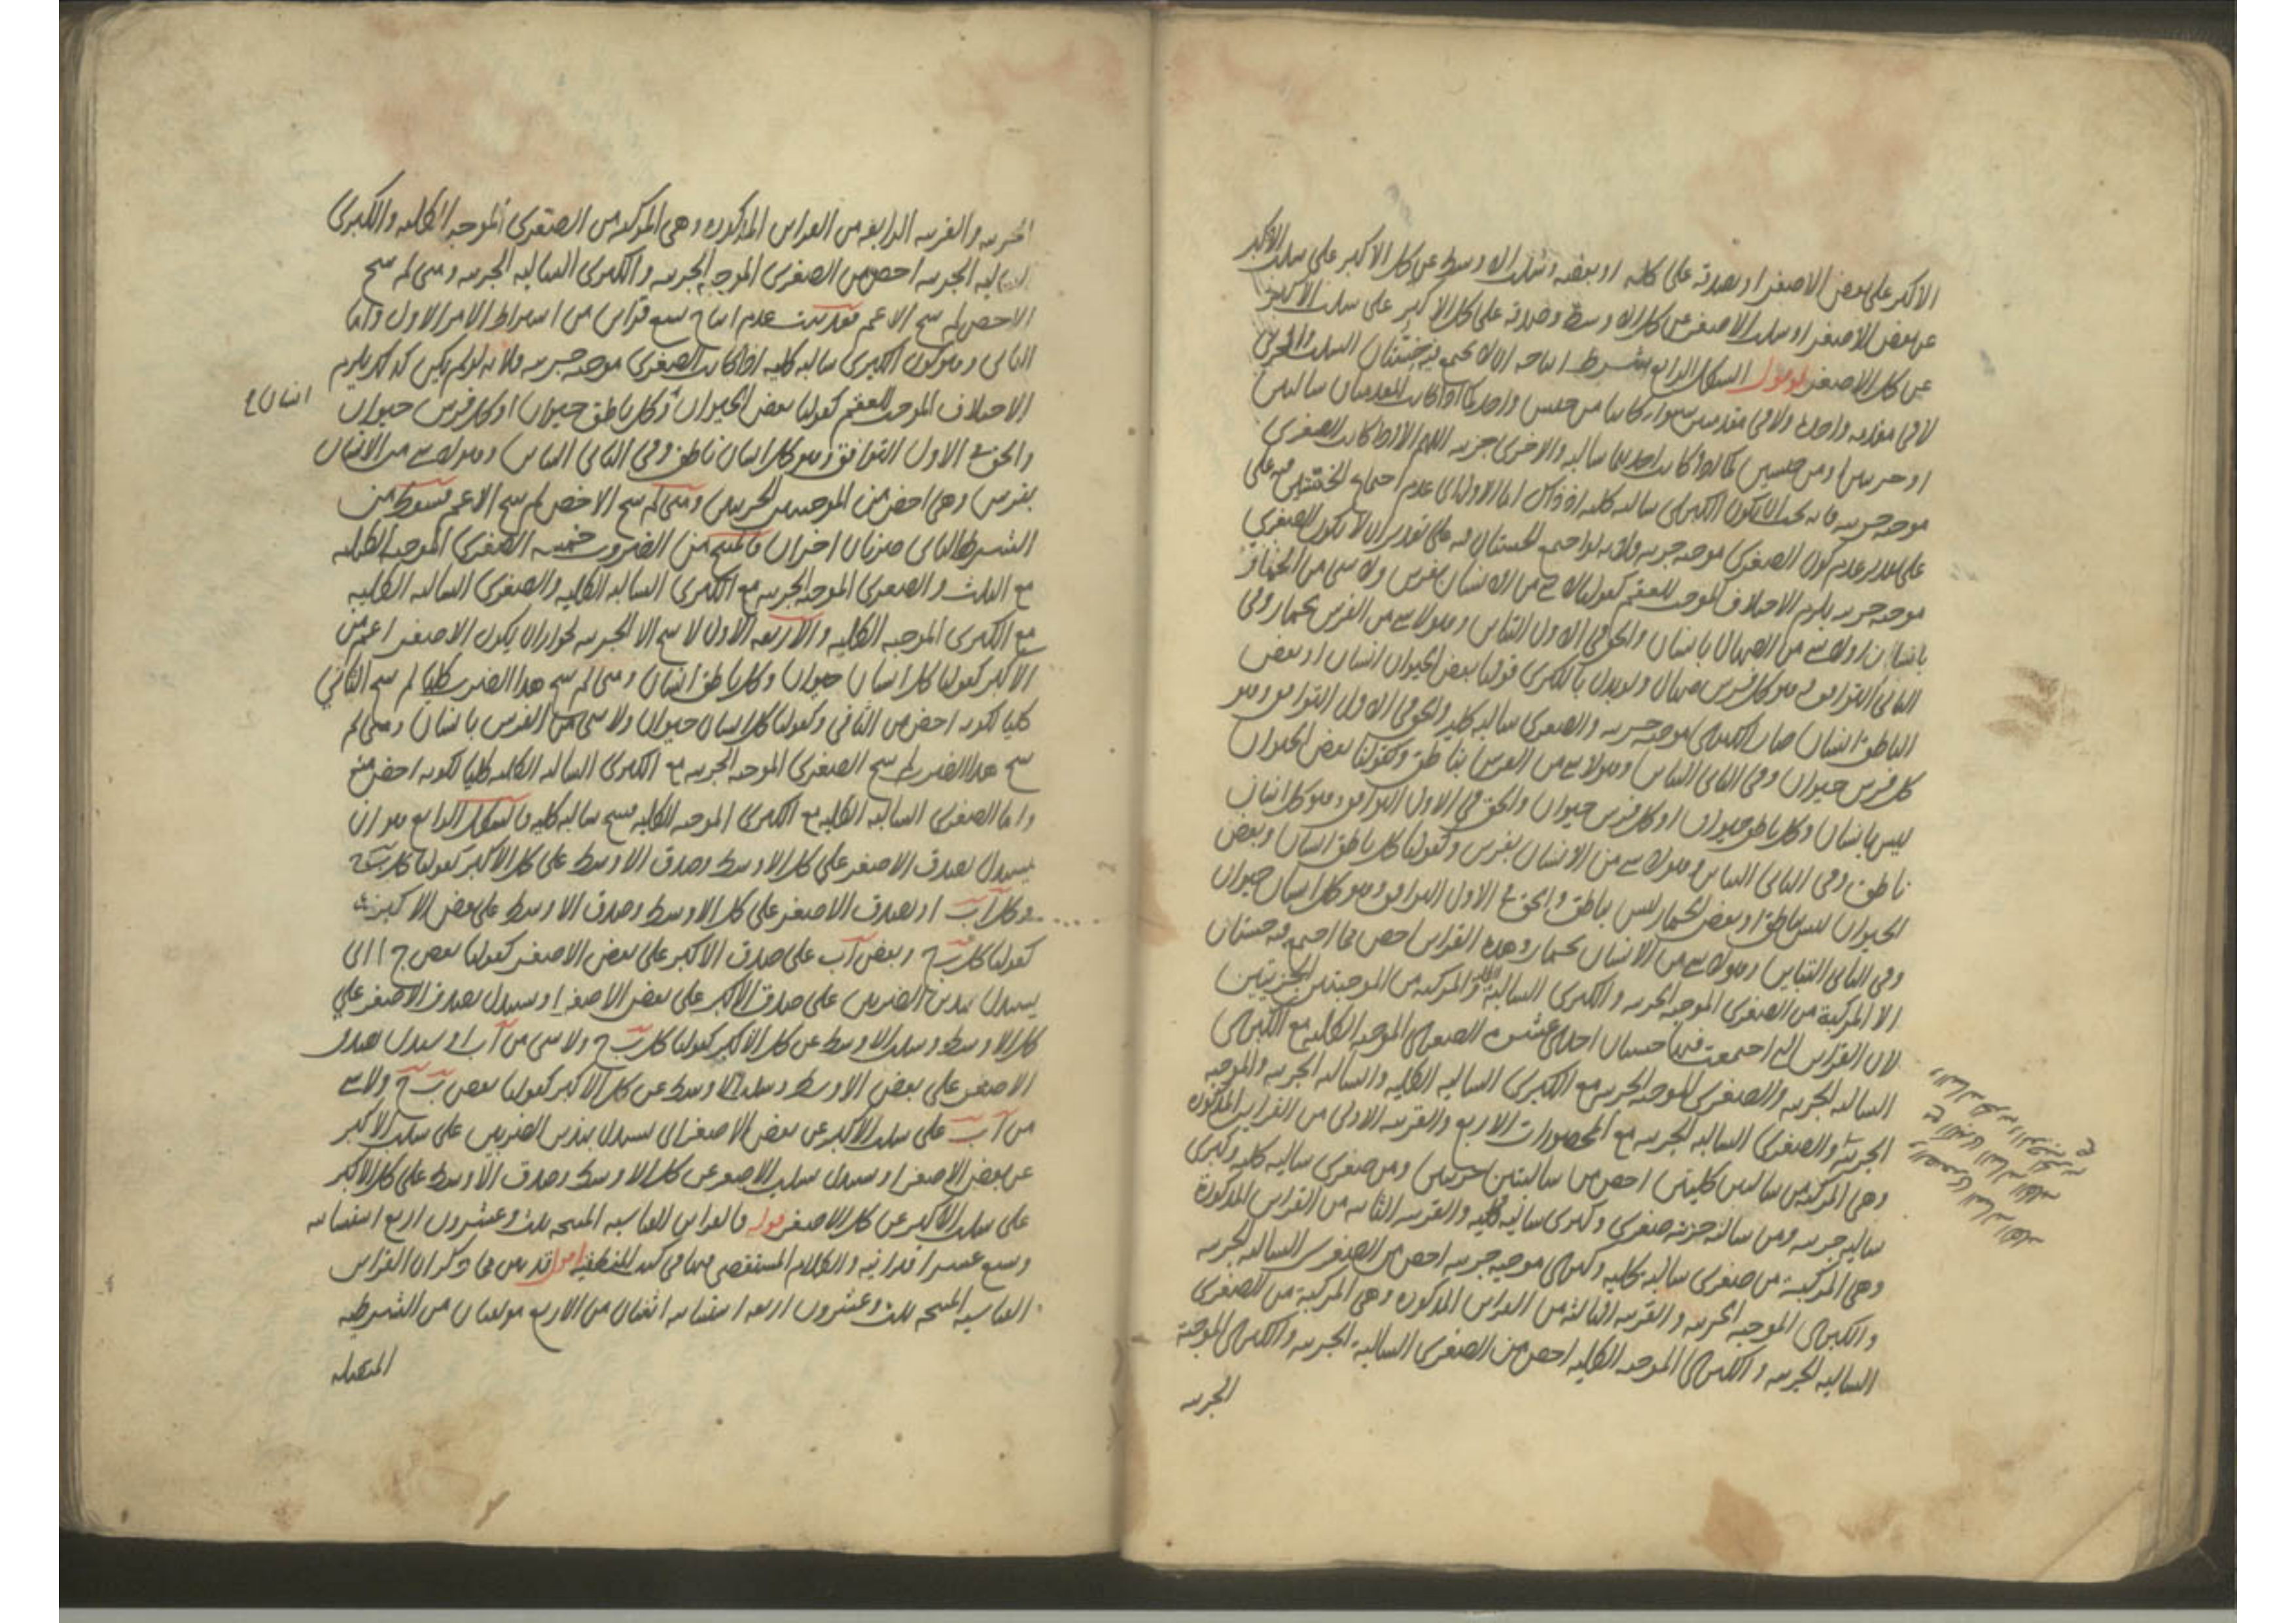 الاكبر على بعض الاصغر او بصدقه على كله او بعضه وسلب الاوسط عن كل الاكبر على سلب الاكبر
عن بعض الاصغر او سلب الاصغر عن كل الاوسط وصدقه على كل الاكبر على سلب الاكبر
عن كل الاصغر الشكل الرابع يشترط انتاجه ان لا يجتمع فيه خستان السلب والجزئى
لا فى مقدمه واحده ولا فى مقدمتين سواء كانتا من جنس واحد كما اذا كانت المقدمتان سالبتين
او جزئيتين او من جنسين كما اذا كانت احديهما سالبه والاخرى جزئيه اللهم الا اذا كانت الصغرى
موجبه جزئيه فانه يجب ان يكون الكبرى سالبه كليه اذ ذاك اما الاول اى عدم اجتماع الخستين فيه على
على تقدير عدم كون الصغرى موجبه جزئيه فلانه لو اجتمع الخستان فيه على تقدير ان لا يكون الصغرى
موجبه جزئيه يلزم الاختلاف الموجب للعقم كقولنا لا شى من الانسان بفرس ولا شى من الحمار
بانسان او لا شى من الصهال بانسان والحق فى الاول التباين وهو لا شى من الفرس بحمار وفى
الثانى التوافق وهو كل فرس صهال ولو بدل بالكبرى قولنا بعض الحيوان انسان او بعض
الناطق انسان صار الكبرى موجبه جزئيه والصغرى سالبه كليه والحق فى الاول التوافق وهو
كل فرس حيوان وفى الثانى التباين وهو لا شى من الفرس بناطق وكقولنا بعض الحيوان
ليس بانسان وكل ناطق حيوان او كل فرس حيوان والحق فى الاول التوافق وهو كل انسان
ناطق وفى الثانى التباين وهو لا شى من الانسان بفرس وكقولنا كل ناطق انسان وبعض
الحيوان ليس بناطق او بعض الحمار ليس بناطق والحق فى الاول التوافق وهو كل انسان حيوان
وفى الثانى التباين وهو لا شى من الانسان بحمار وهذه القرائن اخص مما اجتمع فيه خستان
الا المركبة من الصغرى الموجبه الجزئيه والكبرى السالبه والمركبه من الموجبتين الجزئيتين
لان القرائن التى اجتمعت فيها خستان احدى عشره الصغرى الموجبه الكليه مع الكبرى
السالبه الجزئيه والصغرى الموجبه الجزئيه مع الكبرى السالبه الكليه والسالبه الجزئيه والموجبه
الجزئيه والصغرى السالبه الجزئيه مع المحصورات الاربع والقرينه الاولى من القرائن المذكوره
وهى المركبه من سالبتين كليتين اخص من سالبتين جزئيتين ومن صغرى سالبه كليه وكبرى
سالبه جزئيه ومن سالبه جزئيه صغرى وكبرى سالبه كليه والقرينه الثانيه من القرائن المذكورة
وهى المركبة من صغرى سالبه كليه وكبرى موجبه جزئيه اخص من الصغرى السالبه الجزئيه
والكبرى الموجبه الجزئيه والقرينه الثالثه من القرائن المذكوره وهى المركبة من الصغرى
السالبه الجزئيه والكبرى الموجبه الكليه اخص من الصغرى السالبة الجزئيه والكبرى الموجبة
الجزئيه
الجزئيه والقرينه الرابعه من القرائن المذكوره وهى المركبه من الصغرى الموجبه الكليه والكبرى
السالبه الجزئيه اخص من الصغرى الموجبه الجزئيه والكبرى السالبه الجزئيه ومتى لم ينتج
الاخص لم ينتج الاعم فقد ثبت عدم انتاج تسع قرائن من اشتراط الامر الاول واما
الثانى وهو كون الكبرى سالبه كليه اذا كانت الصغرى موجبه جزئيه فلانه لو لم يكن كذلك يلزم
الاختلاف الموجب للعقم كقولنا بعض الحيوان وكل ناطق حيوان او كل فرس حيوان
انسان
والحق فى الاول التوافق وهو كل انسان ناطق وفى الثانى التباين وهو لا شى من الانسان
بفرس وهى اخص من الموجبتين الجزئيتين ومتى لم ينتج الاخص لم ينتج الاعم فسقط من
الشرط الثانى ضربان اخران فالمنتج من الضروب خمسه الصغرى الموجبه الكليه
مع الثلث والصغرى الموجبه الجزئيه مع الكبرى السالبه الكليه والصغرى السالبه الكليه
مع الكبرى الموجبه الكليه والاربعه الاول لا ينتج الا الجزئيه لجواز ان يكون الاصغر اعم من
الاكبر كقولنا كل انسان حيوان وكل ناطق انسان ومتى لم ينتج هذا الضرب كليا لم ينتج الثانى
كليا لكونه اخص من الثانى وكقولنا كل انسان حيوان ولا شى من الفرس بانسان ومتى لم
ينتج هذا الضرب لم ينتج الصغرى الموجبه الجزئيه مع الكبرى السالبه الكليه كليا لكونه اخص منه
واما الصغرى السالبه الكليه مع الكبرى الموجبه الكليه فينتج سالبه كليه فالشكل الرابع هو ان
يستدل بصدق الاصغر على كل الاوسط وصدق الاوسط على كل الاكبر كقولنا كل ب ج
وكل ا ب او بصدق الاصغر على كل الاوسط وصدق الاوسط على بعض الاكبر
كقولنا كل ب ج وبعض ا ب على صدق الاكبر على بعض الاصغر كقولنا بعض ج ا اى
يستدل بهذين الضربين على صدق الاكبر على بعض الاصغر او يستدل بصدق الاصغر على
كل الاوسط وسلب الاوسط عن كل الاكبر كقولنا كل ب ج ولا شى من ا ب او يستدل بصدق
الاصغر على بعض الاوسط وسلب الاوسط عن كل الاكبر كقولنا بعض ب ج ولا شى
من ا ب على سلب الاكبر عن بعض الاصغر اى يستدل بهذين الضربين على سلب الاكبر
عن بعض الاصغر او يستدل بسلب الاصغر عن كل الاوسط وصدق الاوسط على كل الاكبر
على سلب الاكبر عن كل الاصغر قوله فالقرائن القياسيه المنتجه ثلث وعشرون اربع استثنائيه
وتسع عشر اقترانيه والكلام المستقصى فيها فى كتبه المنطقيه اقول قد بين مما ذكر ان القرائن
القياسيه المنتجه ثلث وعشرون اربعه استثنائيه اثنان من الاربع مولفان من الشرطيه
المتصله